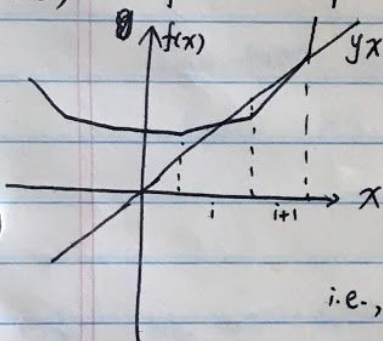 f(x)
yx
x
i
i+1
i.e.,